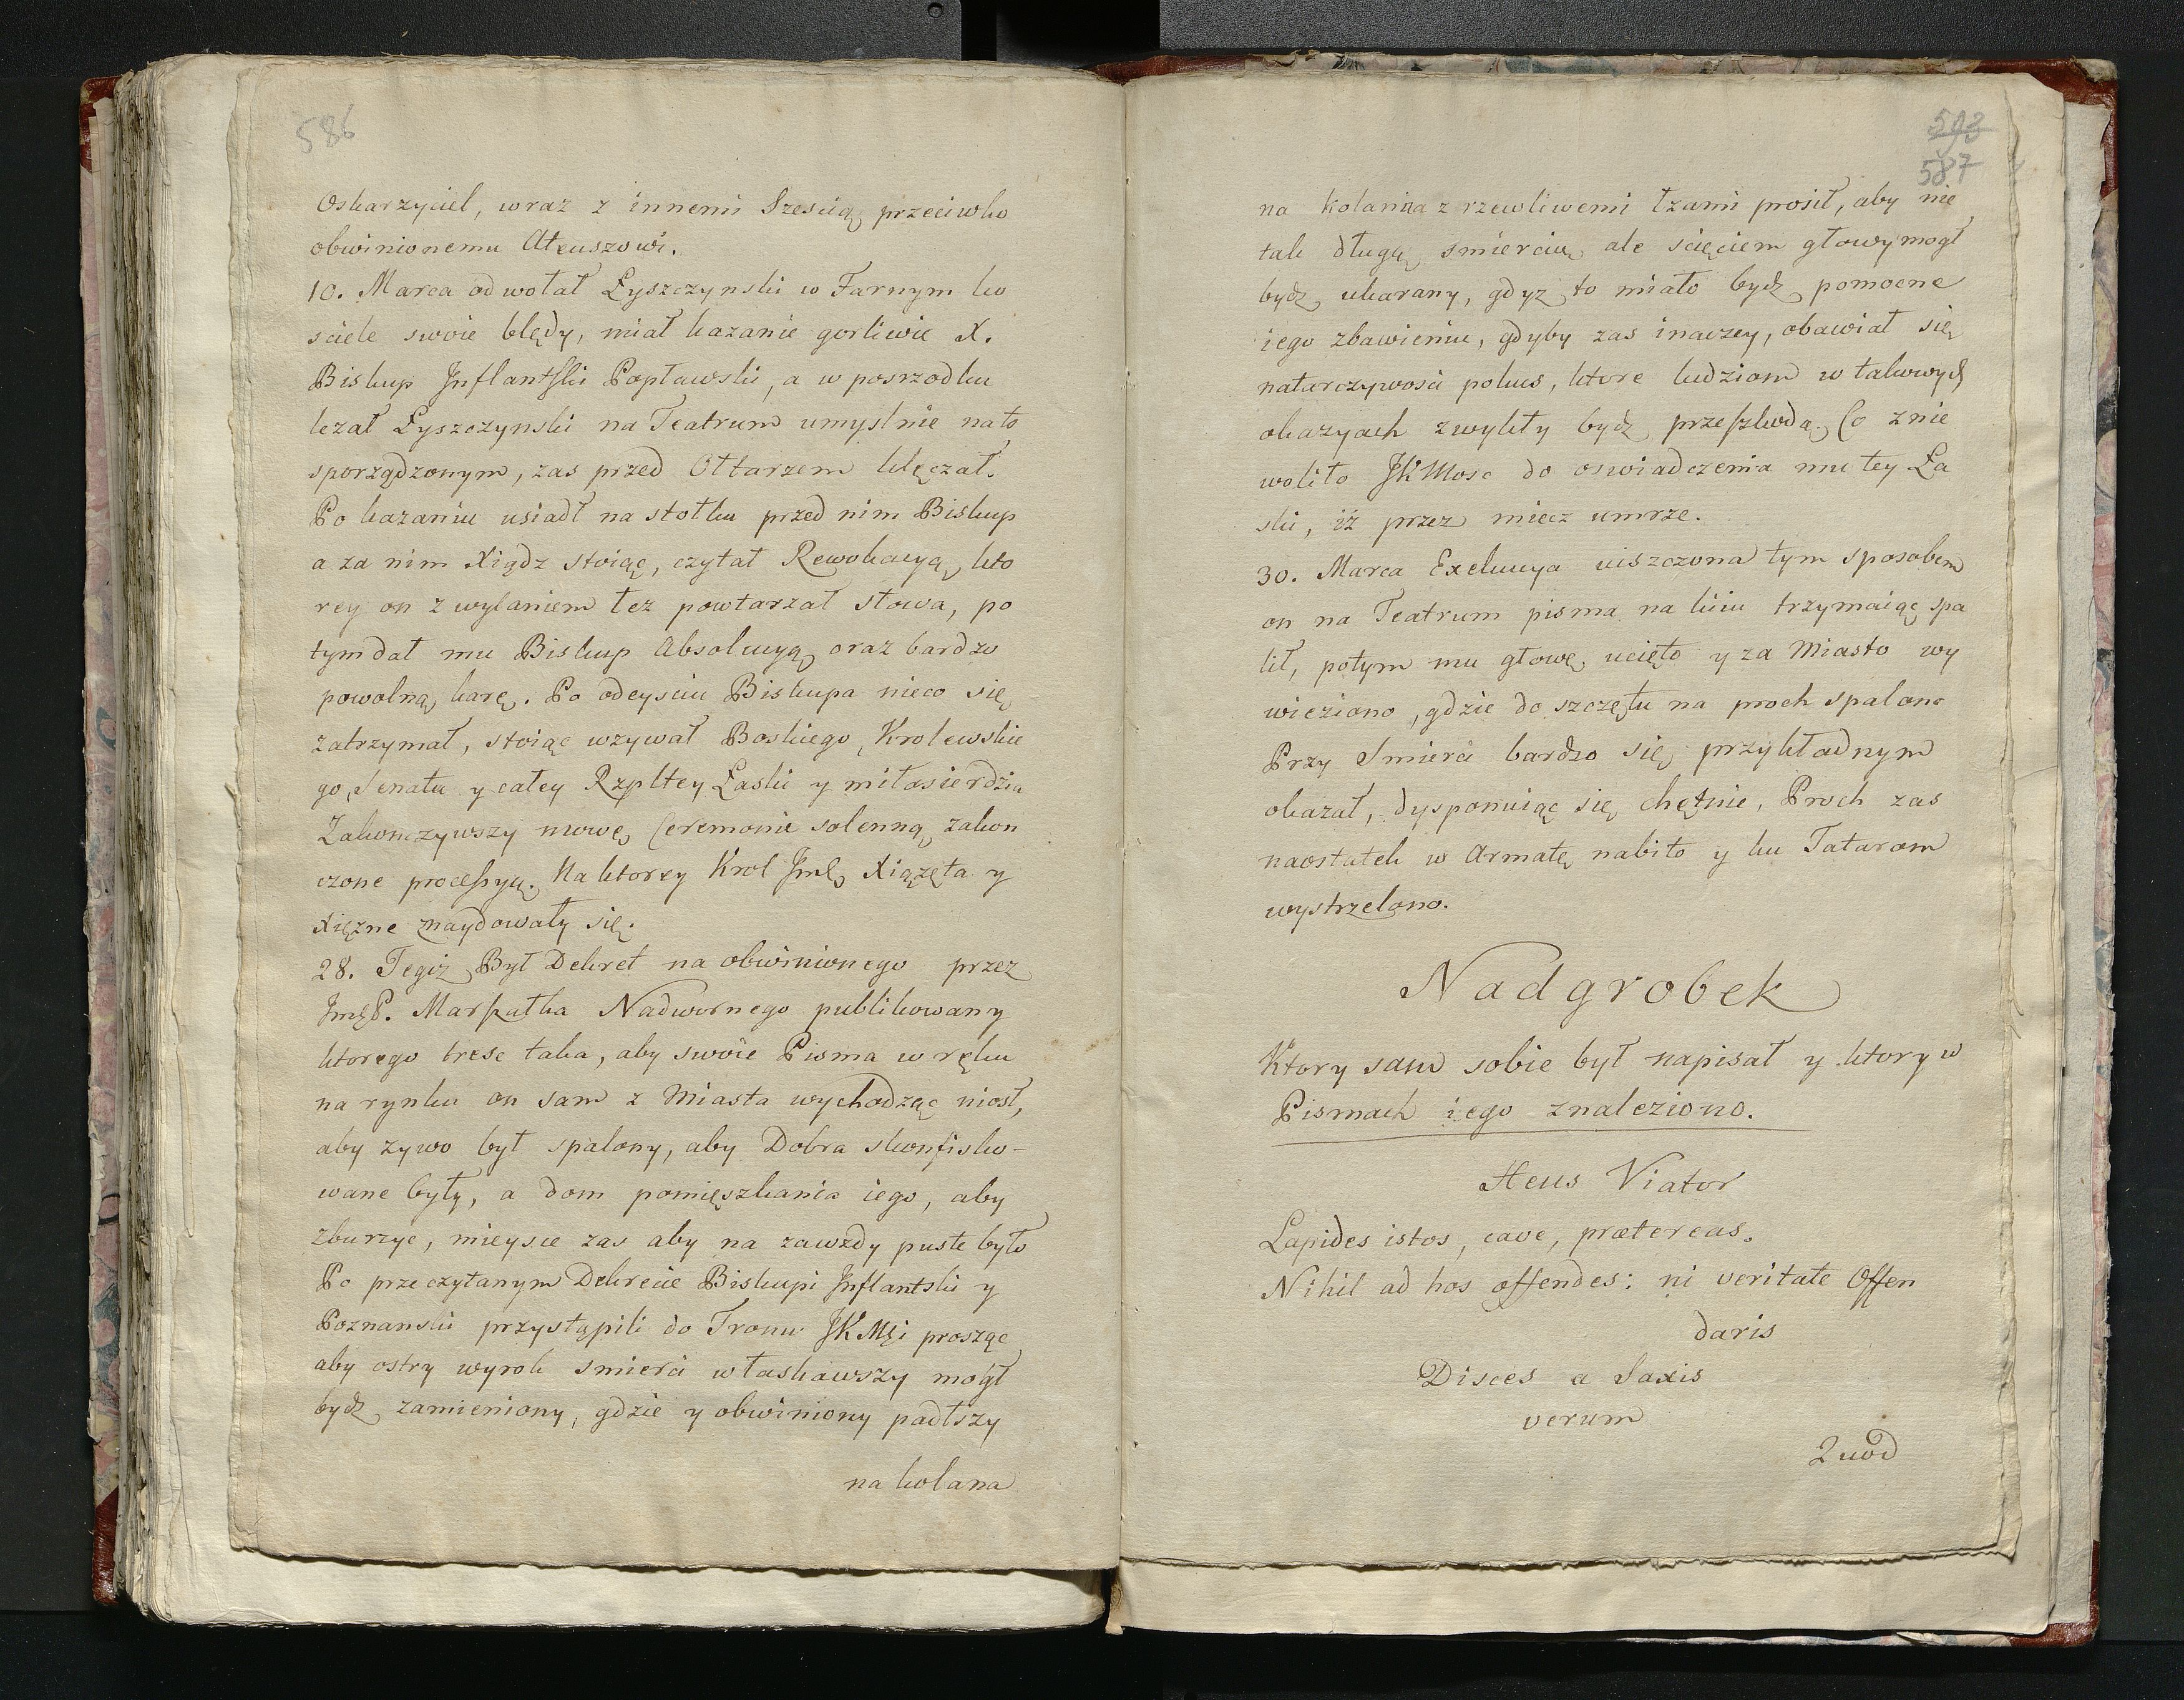 586
Oskarzyciel, wraz z innemi Szescią przeciwko
obwinionemu Ateuszowi.
10. Marca odwołał Łyszczynski w Farnym ko
sciele swoie błędy, miał kazanie gorliwie X.
Biskup Inflantski Popławski, a w posrzodku
lezał Łyszczynski na Teatrum umyslnie nato
sporządzonym, zas przed Ołtarzem klęczał.
Po kazaniu usiadł na stołku przed nim Biskup
a za nim Xiądz stoiąc, czytał Rewokacyą, kto
rey on z wylaniem łez powtarzał słowa, po
tym dał mu Biskup Absolucyą oraz bardzo
powolną karę. Po odeysciu Biskupa nieco się
zatrzymał, stoiąc wzywał Boskiego, Krolewskie
go, Senatu y całey Rzpltey Łaski y miłosierdzia
Zakonczywszy mowę Ceremonie solenną zakon
czone processyą. Na ktorey Krol Jmć, Xiążęta y
Xięzne znaydowały się.
28. Tegiz Był Dekret na obwinionego przez
JmćP. Marszałka Nadwornego publikowany
ktorego tresc taka, aby swoie Pisma w ręku
na rynku on sam z Miasta wychodząc niosł,
aby zywo był spalony, aby Dobra skonfisko-
wane były, a dom pomięszkania iego, aby
zburzyc, mieysce zas aby na zawzdy puste było
Po przeczytanym Dekrecie Biskupi Inflantski y
Poznanski przystąpili do Tronu JKMći prosząc
aby ostry wyrok smierci w łaskawszy mogł
bydz zamieniony, gdzie y obwiniony padłszy
na kolana
593
587
na kolana z rzewliwemi łzami prosił, aby nie
tak długą smiercią ale scięciem głowy mogł
bydz ukarany, gdyz to miało bydz pomocne
iego zbawieniu, gdyby zas inaczey, obawiał się
natarczywosci pokus, ktore ludziom w takowych
okazyach zwykły bydz przeszkodą. Co znie
woliło JKMosc do oswiadczenia mu tey Ła
ski, iż przez miecz umrze.
30. Marca Exekucya uiszczona tym sposobem
on na Teatrum pisma na kiiu trzymaiąc spa
lił, potym mu głowę ucięto y za Miasto wy
wieziono, gdzie do szczętu na proch spalono
Przy Smierci bardzo się przykładnym
okazał, dysponuiąc się chętnie, Proch zas
naostatek w Armatę nabito y ku Tatarom
wystrzelono.
Nadgrobek
Ktory sam sobie był napisał y ktory w
Pismach iego znaleziono.
Heus Viator
Lapides istos, cave, prætereas.
Nihil ad hos offendes: ni veritate Offen
daris
Disces a Saxis
verum
Quod